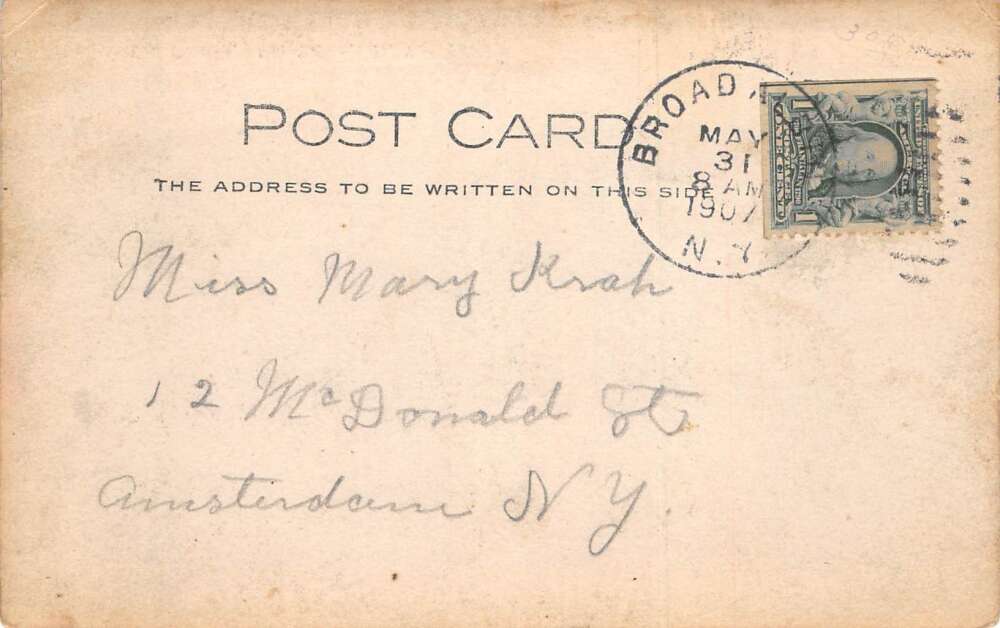 POST CARD
THE ADDRESS TO BE WRITTEN ON THIS SIDE
BROADA
MAY
31
8 AM
1907
N.Y.
Miss Mary Krah
12 McDonald St
Amsterdam N Y.